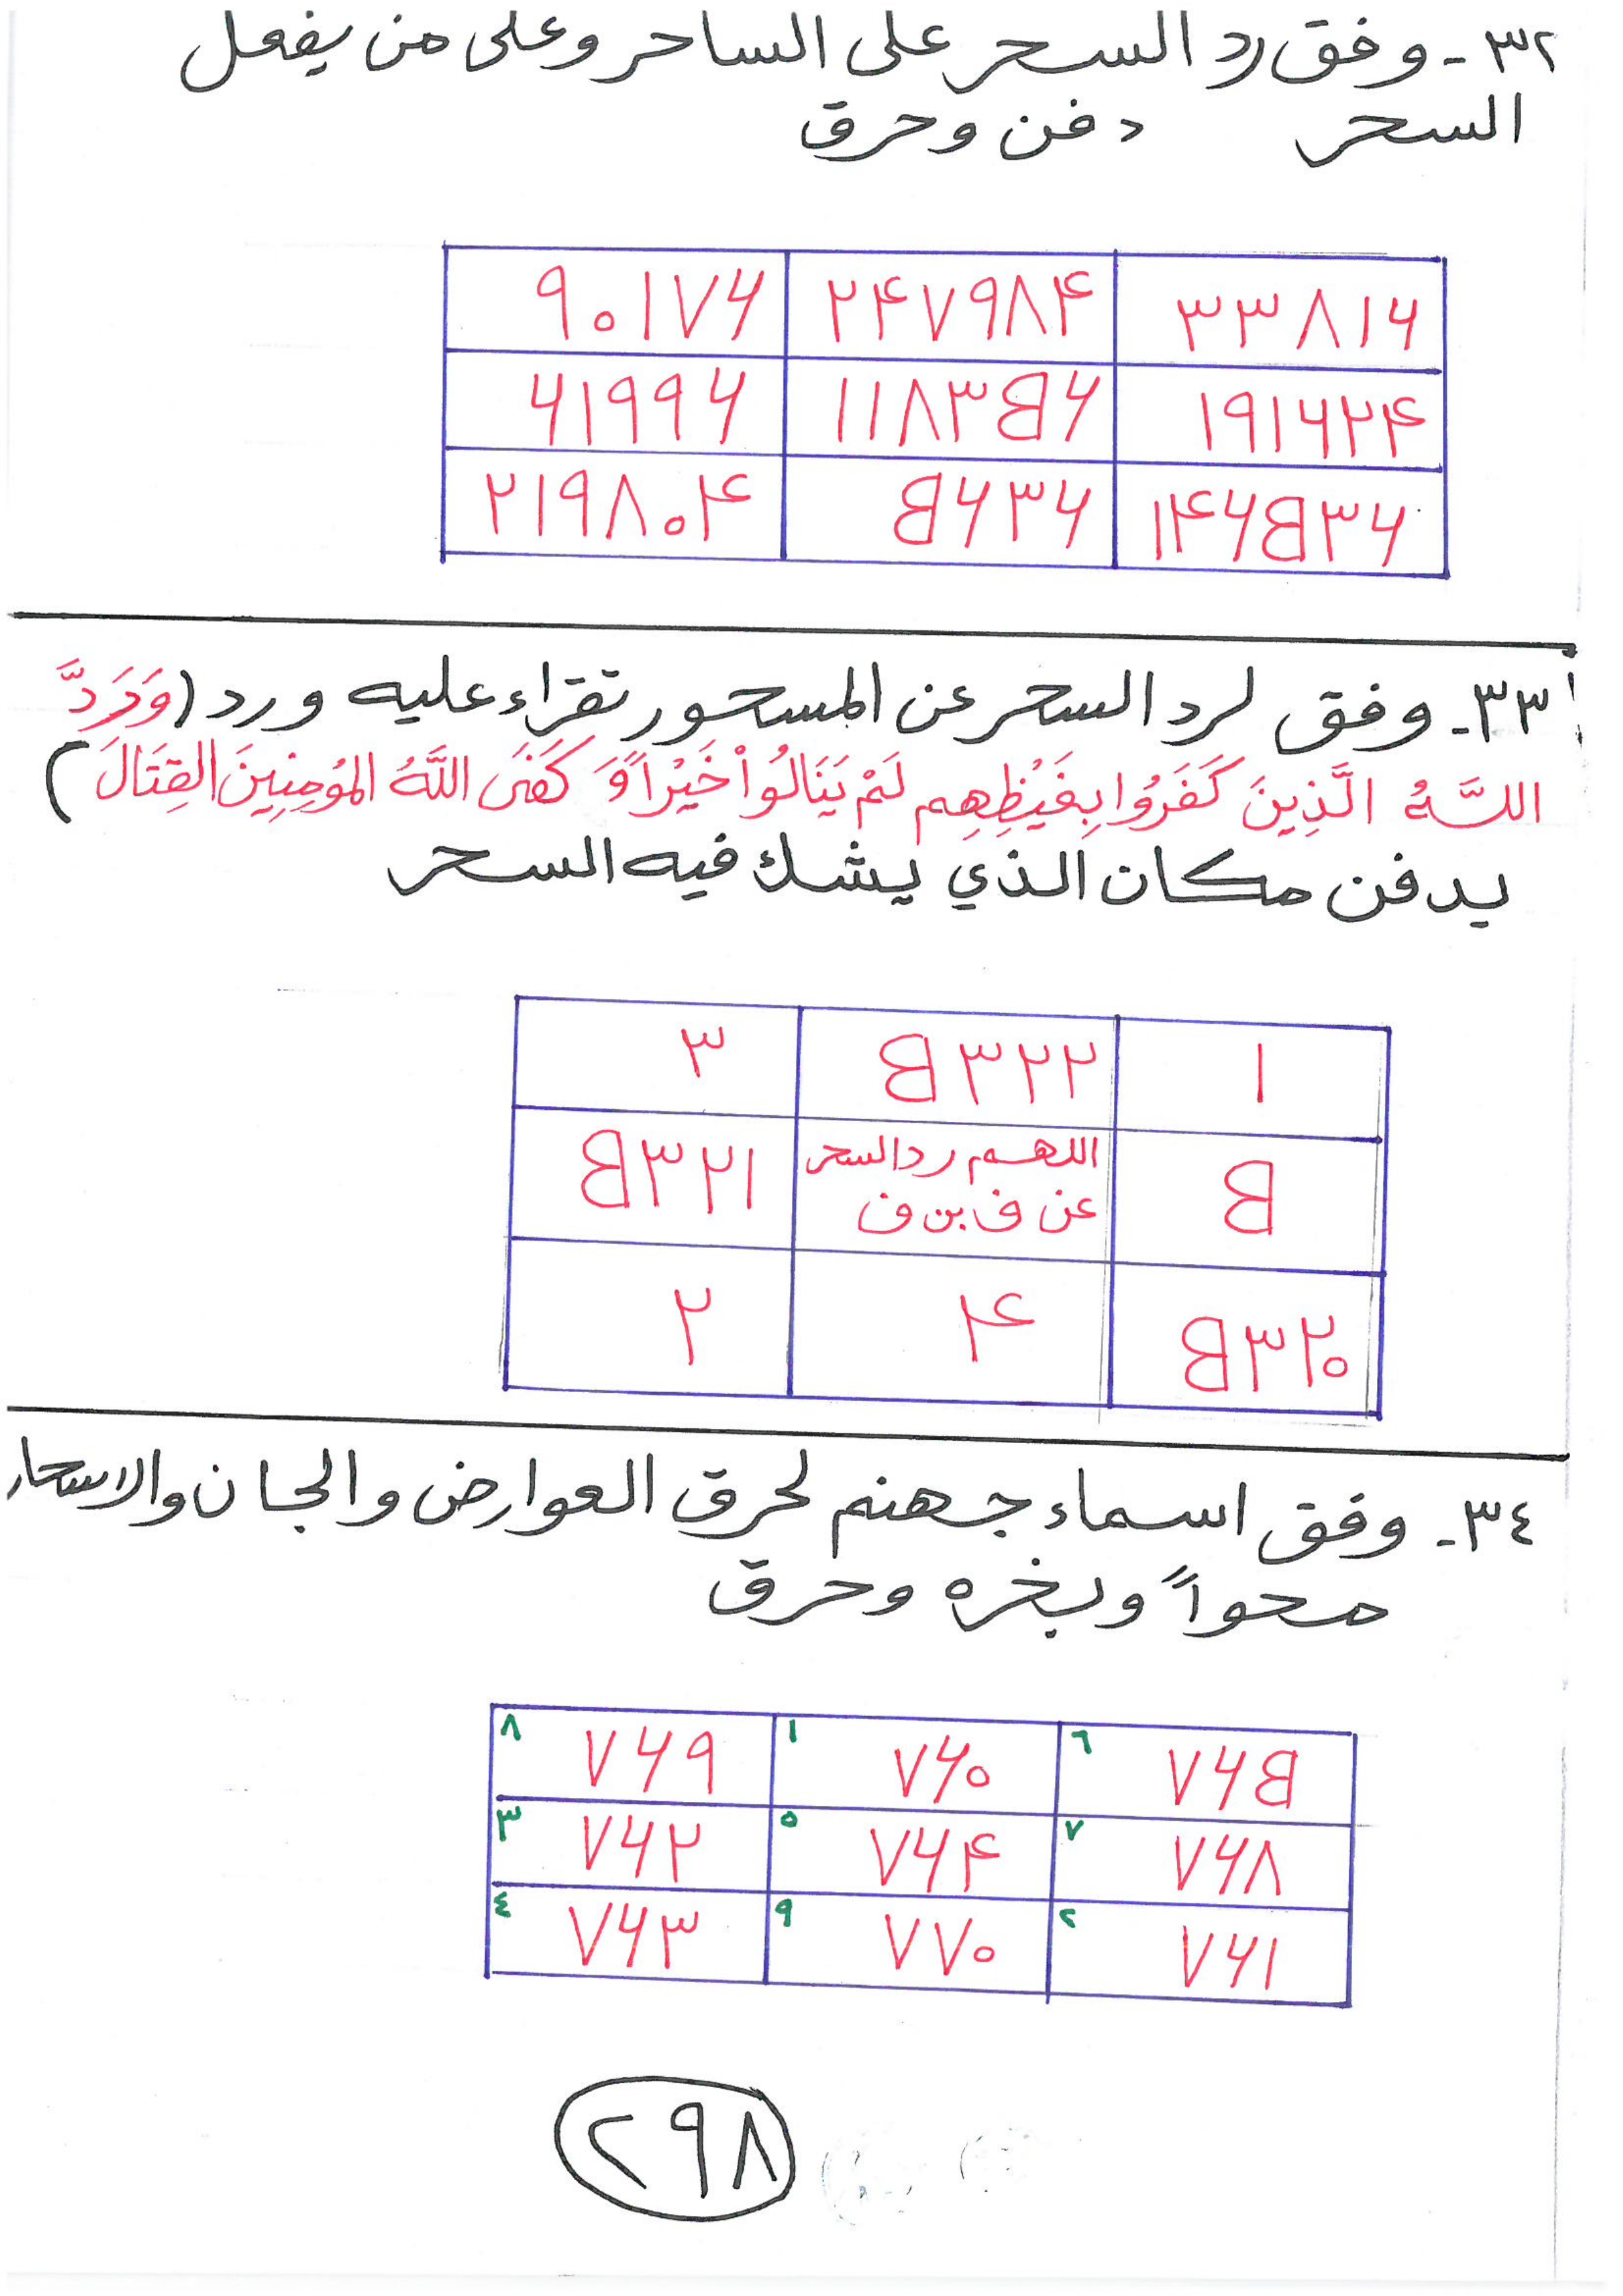 ٣٢- وفق رد السحر على الساحر وعلى من يفعل
السحر دفن وحرق
٩٠١٧۶ ٢۴٧٩٨۴ ٣٣٨١۶
۶١٩٩۶ ١١٨٣B۶ ١٩١۶٢۴
٢١٩٨٠۴ B۶٣۶ ١۴۶B٣۶
٣٣- وفق لرد السحر عن المسحور تقراء عليه ورد (وَرَدَّ
اللَّهُ الَّذِينَ كَفَرُوا بِغَيْظِهِم لَمْ يَنَالُواْ خَيْراً وَ كَفَى اللَّهُ المُؤمِنِينَ القِتَالَ)
يدفن مكان الذي يشك فيه السحر
٣ B٣٢٢ ١
B٣٢١ اللهم رد السحر B
عن ف بن ف
٢ ۴ B٣٢٠
٣٤- وفق اسماء جهنم لحرق العوارض والجان والاسحار
محواً وبخره وحرق
٨ ٧۶٩ ١ ٧۶٠ ٦ ٧۶B
٣ ٧۶٢ ٥ ٧۶۴ ٧ ٧۶٨
٤ ٧۶٣ ٩ ٧٧٠ ٢ ٧۶١
٢٩٨